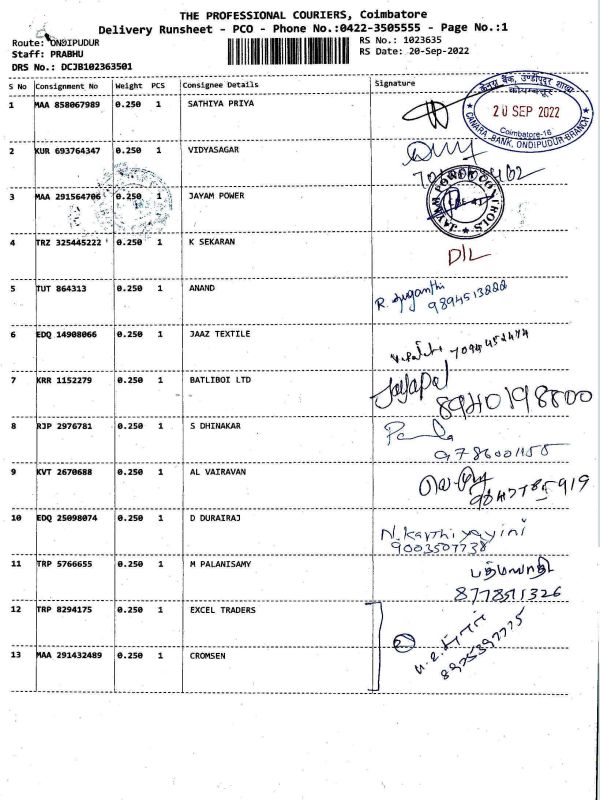 THE PROFESSIONAL COURIERS, Coimbatore
Delivery Runsheet - PCO - Phone No.:0422-3505555 - Page No.:1
Route: ONDIPUDUR
RS No.: 1023635
Staff: PRABHU
RS Date: 20-Sep-2022
DRS No.: DCJB102363501
S No Consignment No Weight PCS Consignee Details Signature
1 MAA 858067989 0.250 1 SATHIYA PRIYA
केनरा बैंक,
20 SEP 2022
Coimbatore-16
CANARA BANK, ONDIPUDUR BRANCH
2 KUR 693764347 0.250 1 VIDYASAGAR
3 MAA 291564706 0.250 1 JAYAM POWER
JAYAM POWER CONTROLS
4 TRZ 325445222 0.250 1 K SEKARAN
DIL
5 TUT 864313 0.250 1 ANAND
R. Suganthi
9894513888
6 EDQ 14908066 0.250 1 JAAZ TEXTILE
7094452474
7 KRR 1152279 0.250 1 BATLIBOI LTD
Jayapal
8940198800
8 RJP 2976781 0.250 1 S DHINAKAR
9786001155
9 KVT 2670688 0.250 1 AL VAIRAVAN
10 EDQ 25098074 0.250 1 D DURAIRAJ
N. Karthiyayini
9003507738
11 TRP 5766655 0.250 1 M PALANISAMY
8778511326
12 TRP 8294175 0.250 1 EXCEL TRADERS
2
8925397775
13 MAA 291432489 0.250 1 CROMSEN